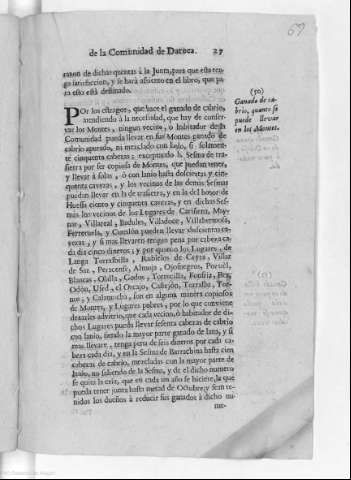 67
de la Comunidad de Daroca. 27
razon de dichas quentas à la Junta, para que esta ten-
ga satisfaccion, y se hará assiento en el libro, que pa-
ra esso está destinado.
(50)
Ganado de ca-
brio, quanto se
puede llevar
en los Montes.
POr los estragos, que hace el ganado de cabrio,
atendiendo à la necesidad, que hay de conser-
var los Montes, ningun vecino, o habitador de la
Comunidad pueda llevar en sus Montes ganado de
cabrio apurado, ni mezclado con lanio, si solamen-
te cinquenta cabezas; exceptando la Sesma de tra-
sierra por ser copiosa de Montes, que puedan tener,
y llevar à solas, ò con lanio hasta docientas y cin-
quenta cavezas, y los vecinos de las demás Sesmas
puedan llevar en la de trasierra, y en la del honor de
Huessa ciento y cinquenta cavezas, y en dichas Ses-
mas los vecinos de los Lugares de Cariñena, Muy-
nue, Villarreal, Badules, Villadoce, Villahermosa,
Ferreruela, y Cutalon puedan llevar docientas ca-
vezas; y si mas llevaren tengan pena por cabeza ca-
da dia cinco dineros; y por quanto los Lugares, de
Langa Torralbilla, Rubielos de Cerya, Villar
de Saz, Peracense, Almoja, Ojosnegros, Pozuèl,
Blancas, Obòla, Godos, Torrecilla, Fonfria, Bea,
Odòn, Used, el Cuejo, Castejòn, Torralba, Tor-
nos, y Calamocha, son en alguna manera copiosos
de Montes, y Lugares pobres, por lo que conviene
dexarles advitrio, que cada vecino, ò habitador de di-
chos Lugares pueda llevar sesenta cabezas de cabrio
con lanio, siendo la mayor parte ganado de lana, y si
mas llevare, tenga pena de seis dineros por cada ca-
beza cada dia, y en la Sesma de Barrachina hasta cien
cabezas de cabrio, mezcladas con la mayor parte de
lanio, no saliendo de la Sesma, y de el dicho numero
se quita la crie, que en cada un año se hiciere, la que
pueda tener junta hasta metad de Octubre, y sean te-
nidos los dueños à reducir sus ganados à dicho nu-
me-